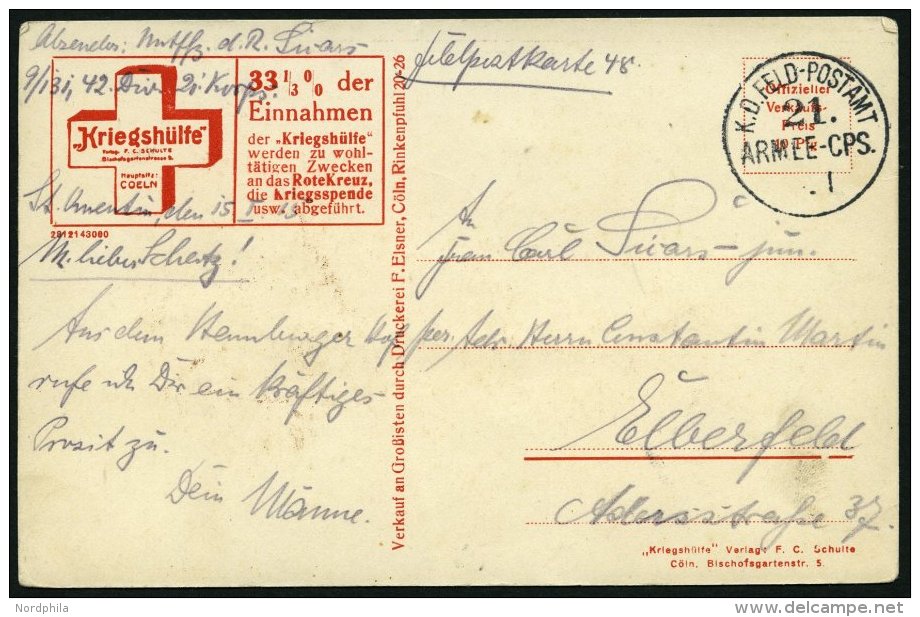 Absender: Untffz. d. R. Suars
9/131, 42. Div. 21. Korps.
Feldpostkarte 48.
„Kriegshülfe"
Verlag F. C. SCHULTE
Bischofsgartenstrasse 5.
Hauptsitz:
COELN
2812143000
33 1/3 0/0 der
Einnahmen
der „Kriegshülfe"
werden zu wohl-
tätigen Zwecken
an das Rote Kreuz,
die Kriegsspende
usw. abgeführt.
Offizieller
Verkaufs-
Preis
Pfg.
K.D. FELD-POSTAMT
21.
ARMEE-CPS.
. 1
St. Quentin, den 15.
M. lieber Schatz!
Aus dem
rufe ich Dir ein kräftiges
Prosit zu.
Dein Männe.
Verkauf an Großisten durch Druckerei F. Elsner, Cöln, Rinkenpfuhl 20-26
An
Frau Carl Suars jun.
per. Adr. Herrn Constantin Martin
Elberfeld
Adersstraße 37.
„Kriegshülfe" Verlag: F. C. Schulte
Cöln, Bischofsgartenstr. 5.
Nordphila
DELCAMPE.NET